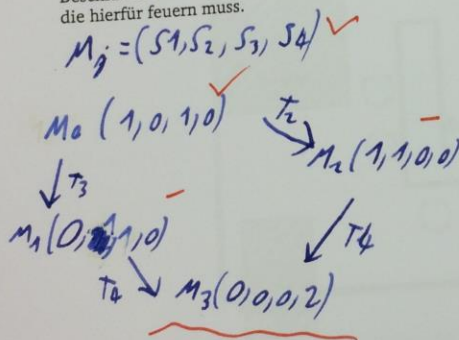 die hierfür feuern muss.
Mj = (S1, S2, S3, S4)
M0 (1, 0, 1, 0)
T2
M2 (1, 1, 0, 0)
T3
M1 (0, 1, 1, 0)
T4
T4
M3 (0, 0, 0, 2)